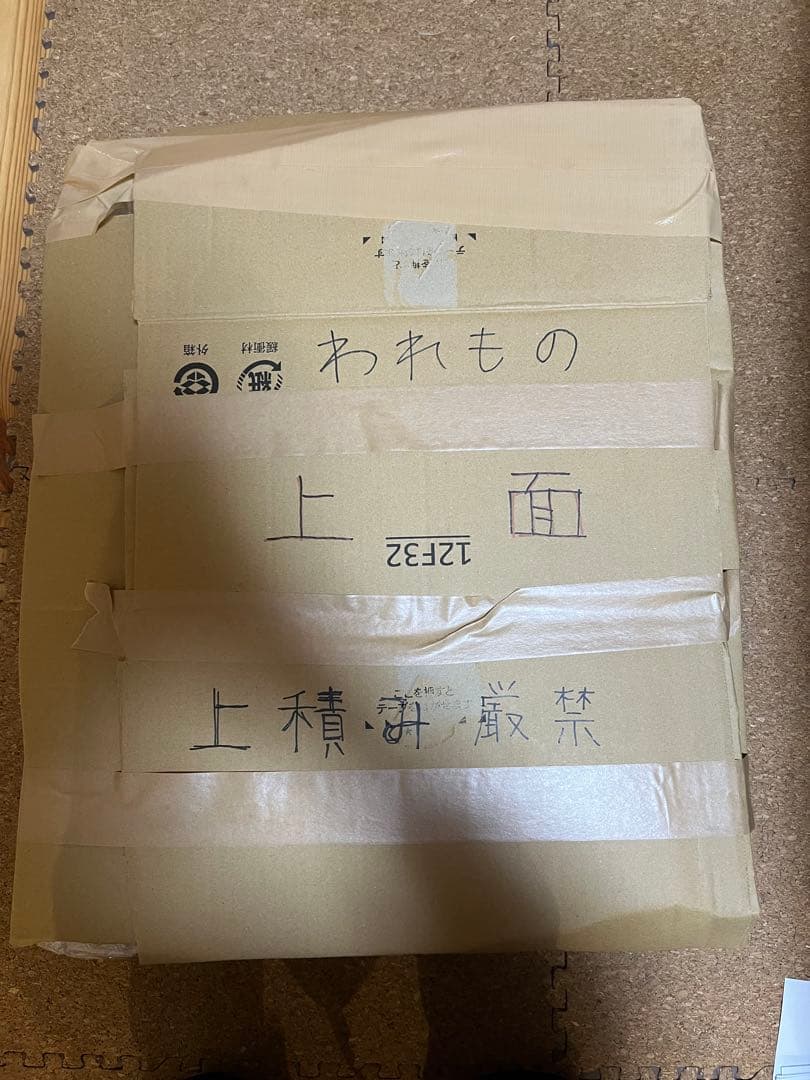 外箱 緩衝材
紙
われもの
上 面
12F32
ここを押すと
上積み厳禁